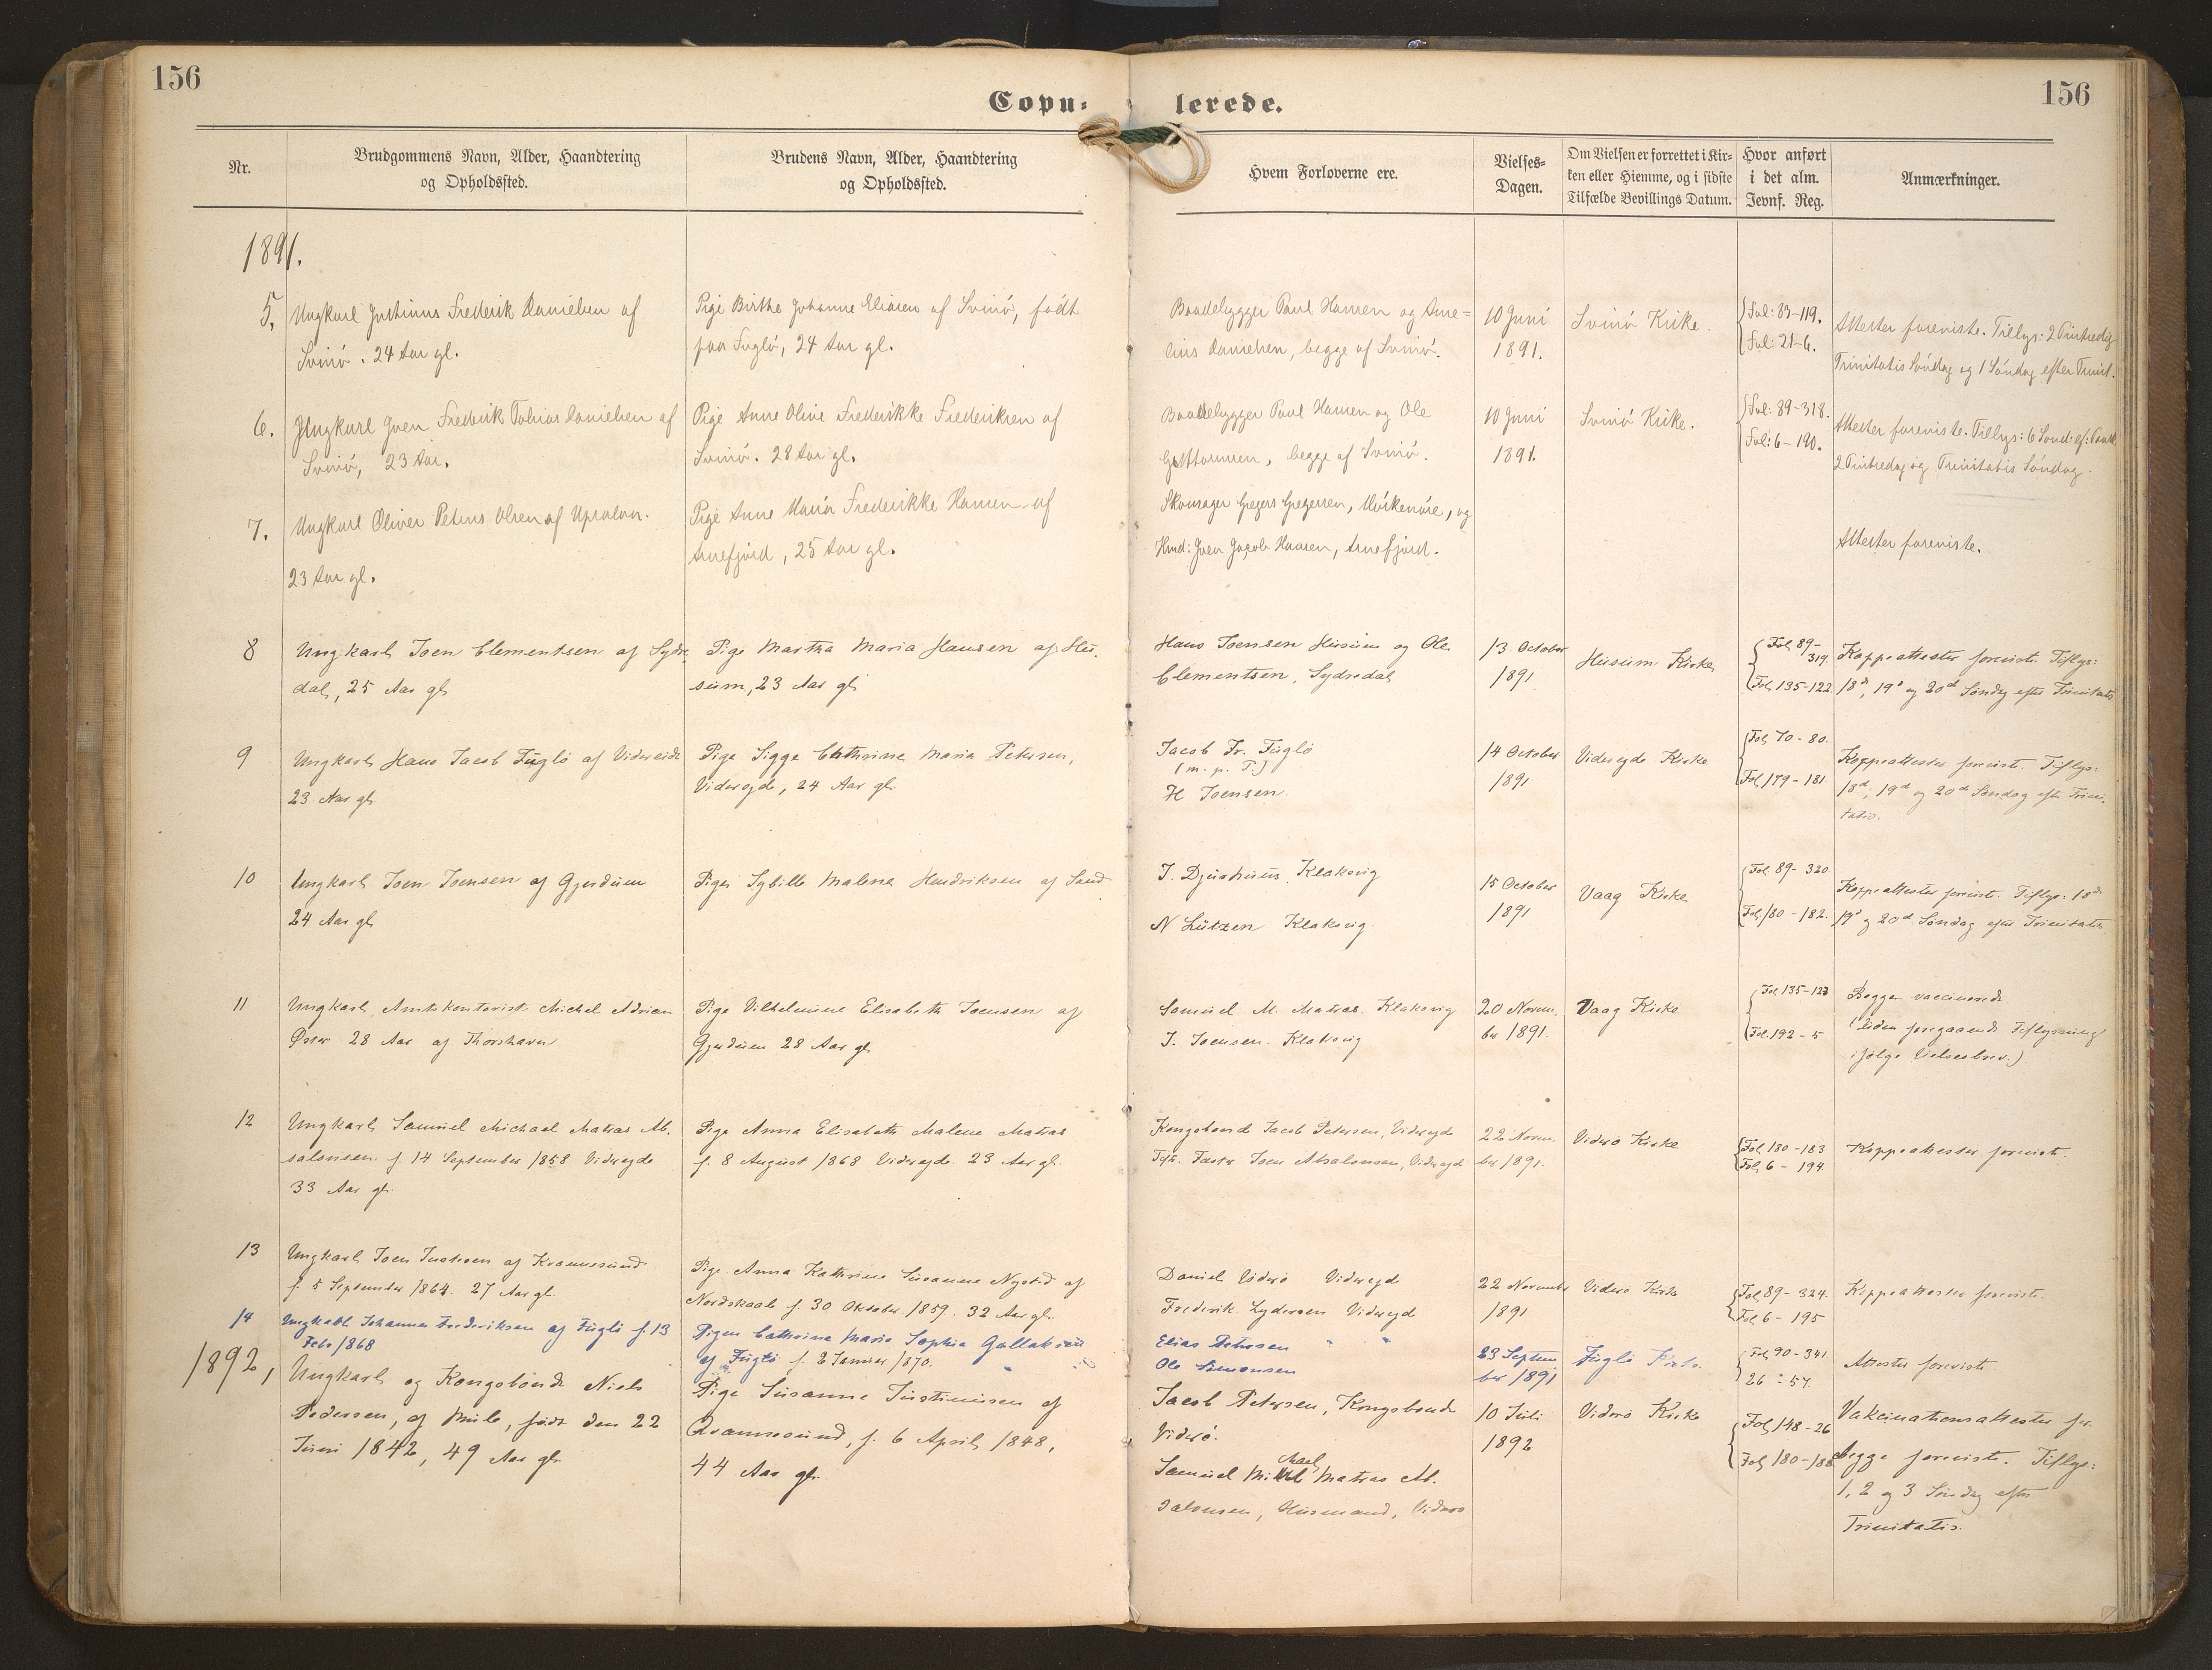 156
Copu=
lerede.
156
Nr.
Brudgommens Navn, Alder, Haandtering
og Opholdssted.
Brudens Navn, Alder, Haandtering
og Opholdssted.
Hvem Forloverne ere.
Vielses=
Dagen.
Om Vielsen er forrettet i Kir=
ken eller Hiemme, og i sidste
Tilfælde Bevillings Datum.
Hvor anført
i det alm.
Jevnf. Reg.
Anmærkninger.
1891.
5.
Ungkarl Justinus Frederik Danielsen af
Svinö. 24 Aar gl.
Pige Birthe Johanne Eliasen af Svinö, født
paa Fuglö, 24 Aar gl.
Baadebygger Poul Hansen og
Danielsen, begge af Svinö.
10 Juni
1891.
Svinö Kirke.
Fol: 89-119.
Fol: 21-6.
Attester foreviste. Tillys: 2 Pintsedag
Trinitatis Söndag og 1 Söndag efter Trinit.
6.
Ungkarl Joen Frederik Tobias Danielsen af
Svinö, 23 Aar.
Pige Anne Olive Frederikke Frederiksen af
Svinö. 28 Aar gl.
Baadebygger Poul Hansen og Ole
Guttormsen, begge af Svinö.
10 Juni
1891.
Svinö Kirke.
Fol: 89-318.
Fol: 6-190.
Attester foreviste. Tillys: 6 Sönd: ef: Paask
2 Pintsedag og Trinitatis Söndag.
7.
Ungkarl Oliver Petrus Olsen af
23 Aar gl.
Pige Anne Maria Frederikke Hansen af
Arnefjord, 25 Aar gl.
Skomager Gregers Gregersen, og
Joen Jacob Hansen, Arnefjord.
Attester foreviste.
8
Ungkarl Joen Clementsen af Sydre
dal, 25 Aar gl
Pige Martha Maria Hansen af Hu-
sum, 23 Aar gl.
Hans Joensen Husum og Ole
Clementsen, Sydredal
13 October
1891
Husum Kirke
Fol 89-
319.
Fol 135-122
Koppeattester foreviste. Tillys:
18d, 19d og 20d Søndag efter Trinitatis
9
Ungkarl Hans Jacob Fuglø af Videreide
23 Aar gl.
Pige Sigge Cathrine Maria Petersen,
Videreyde, 24 Aar gl.
Jacob Fr. Fuglø
(m. p. P.)
H Joensen.
14 October
1891
Videreyde Kirke
Fol 70-80.
Fol 179-181
Koppeattester foreviste. Tillys:
18d, 19d og 20d Søndag eft Trini-
tatis.
10
Ungkarl Joen Joensen af Gjerdum
24 Aar gl
Pigen Sybille Malene Hendriksen af Sund
J. Djurhuus Klaksvig
N Lützen Klaksvig
15 October
1891
Vaag Kirke
Fol 89-320
Fol 180-182.
Koppeattester foreviste. Tillys: 18d
19d og 20d Søndag efter Trinitatis
11
Ungkarl, Amtskontorist Michel Adrian
Øster 28 Aar af Thorshavn
Pige Vilhelmine Elisabeth Joensen af
Gjerdum 28 Aar gl
Samuel M. Matras Klaksvig
J. Joensen. Klaksvig
20 Novem-
ber 1891.
Vaag Kirke
Fol 135-123
Fol. 192-5
Begge vaccinerede
(Uden foregaaende Tillysning
ifølge Vielsesbrev.)
12
Ungkarl Samuel Michael Matras Ab-
salonsen f. 14 September 1858 Videreyde
33 Aar gl.
Pige Anna Elisabeth Malene Matras
f. 8 August 1868 Videreyde. 23 Aar gl.
Kongsbonde Jacob Petersen, Videreyde
Fæster Joen Absalonsen, Videreyde
22 Novem-
ber 1891.
Viderø Kirke
Fol 180-183
Fol 6-194
Koppeattester foreviste.
13
Ungkarl Joen Joensen af Kvannesund
f. 5 September 1864. 27 Aar gl.
Pige Anna Kathrine Susanne Nysted af
Nordskaale f. 30 Oktober 1859. 32 Aar gl.
Daniel Viderø Videreyd
Frederik Lydersen Videreyd
22 Novemb
1891
Viderø Kirke
Fol 89-324.
Fol 6-195
Koppeattester foreviste.
14
Ungkarl Johannes Frederiksen af Fuglø f. 13
Febr 1868
Pigen Cathrine Marie Sophie Gullaksen
af Fuglø f. 2 Januar 1870.
Elias Petersen " "
Ole Simonsen
23 Septem
ber 1891
Fuglø Kirke.
Fol 90-341.
26-57.
Attester foreviste
1892,
Ungkarl og Kongsbonde Niels
Pedersen, af Mule, født den 22
Juni 1842, 49 Aar gl.
Pige Susanne Justinusen af
Qvannesund, f. 6 April 1848,
44 Aar gl.
Jacob Petersen, Kongsbonde
Viderø.
Samuel Michael Matras Ab-
salonsen, Husmand, Viderø
10 Juli
1892
Viderø Kirke
Fol 148-26
Fol 180-188
Vakcinationsattester for
begge foreviste. Tillys:
1, 2 og 3 Søndag efter
Trinitatis.